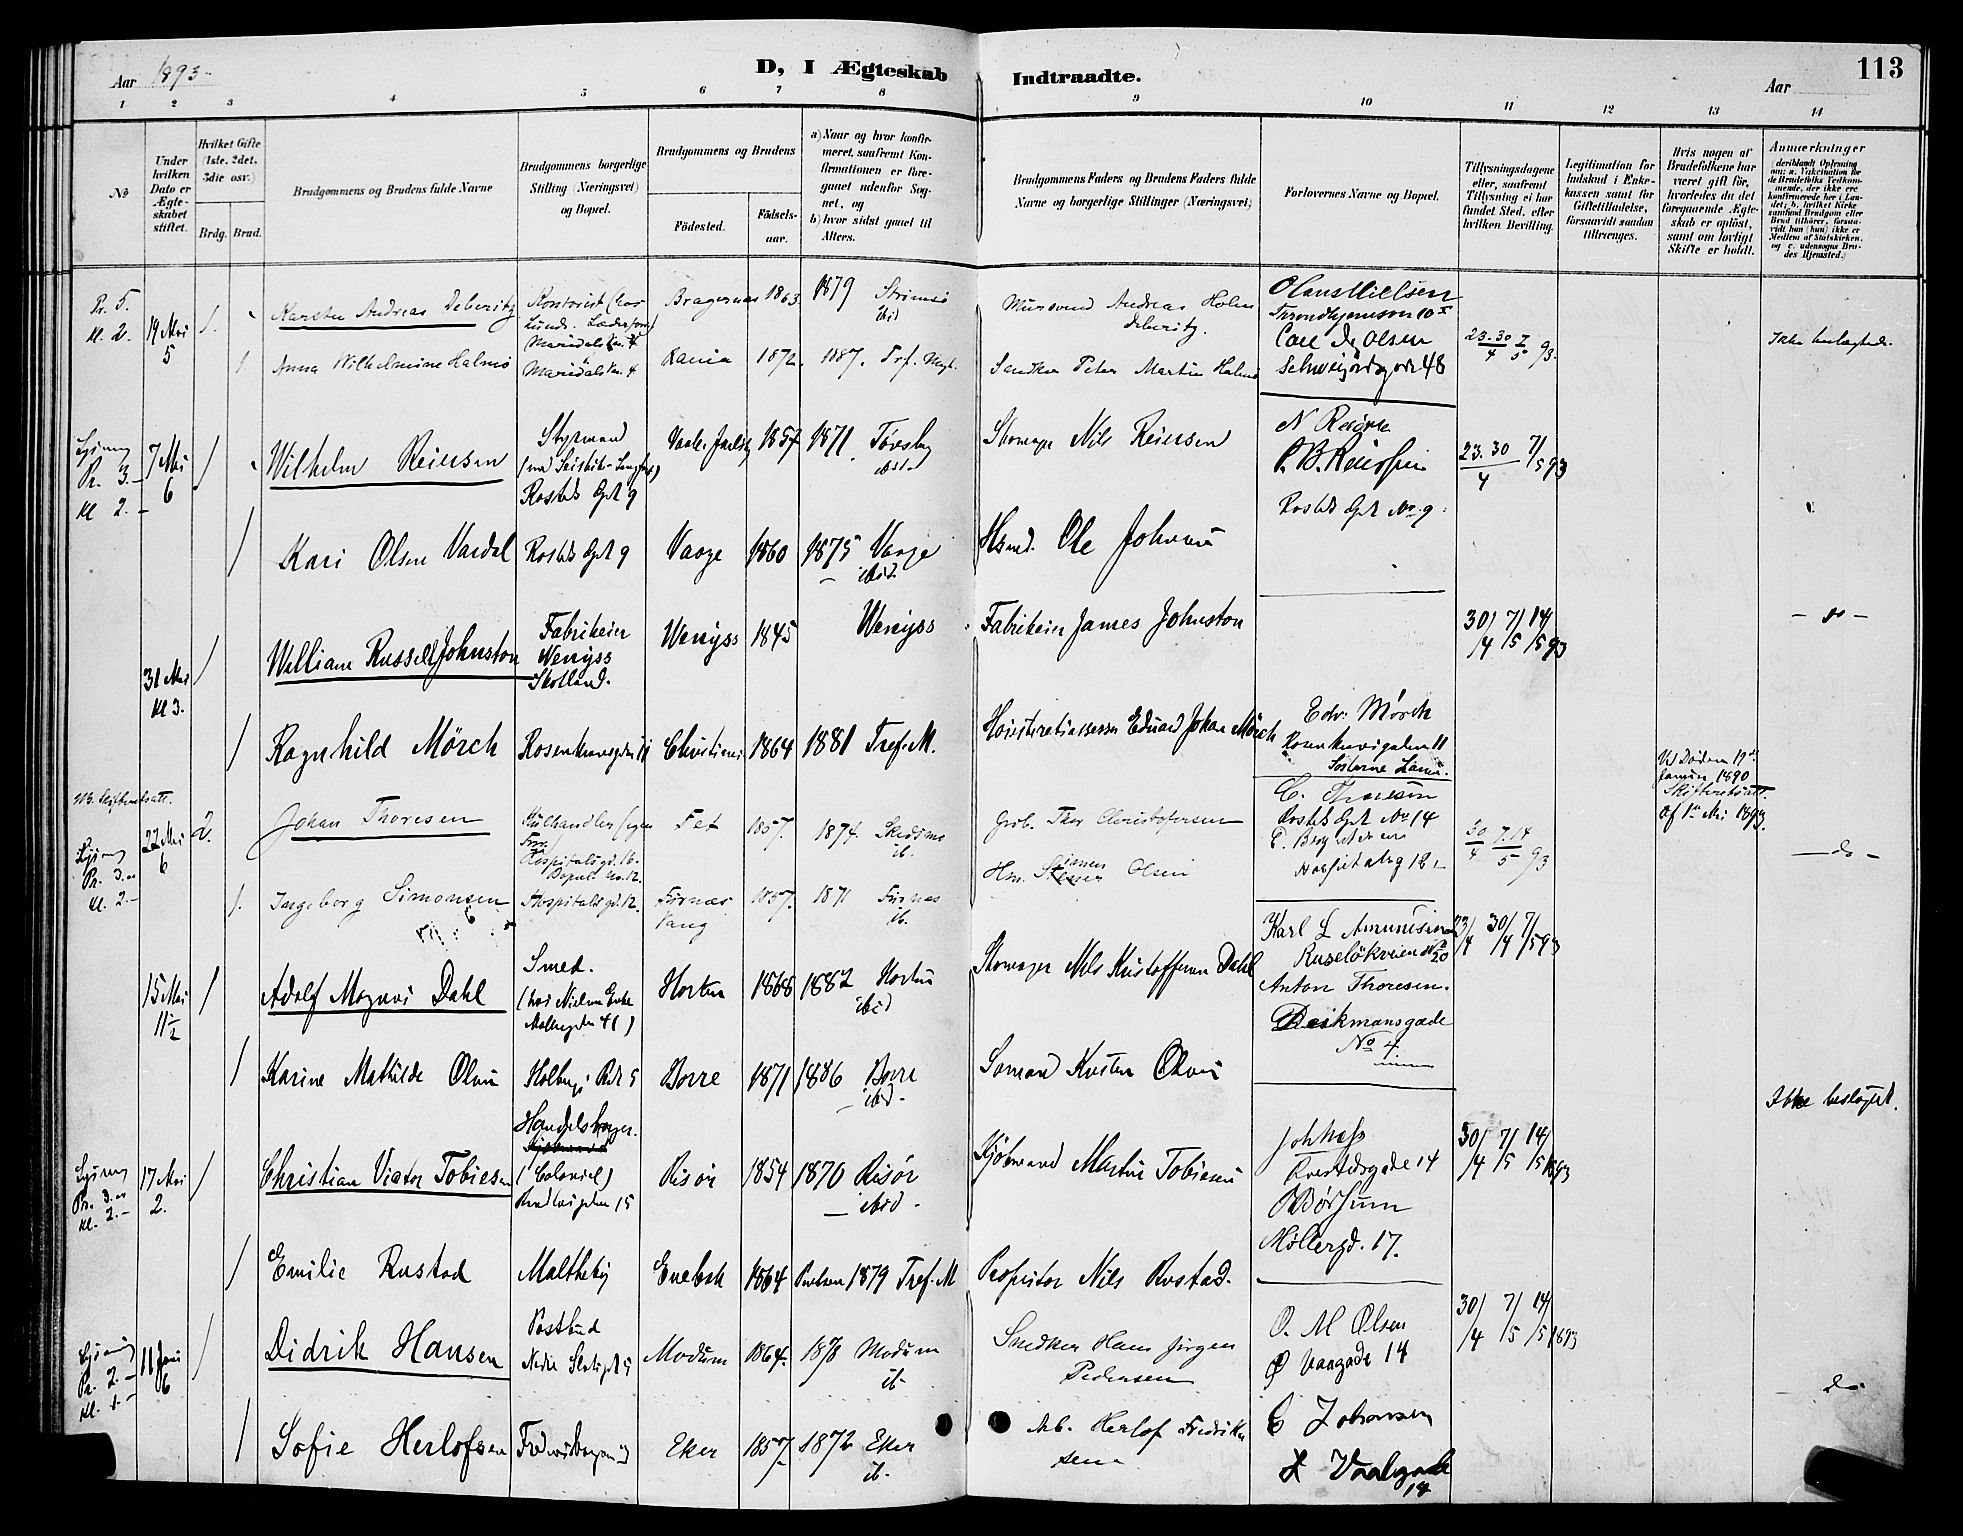 Aar 1893.
D, I Ægteskab Indtraadte.
Aar
113
1 2 3 4 5 6 7 8 9 10 11 12 13 14
No
Under hvilken Dato er Ægteskabet stiftet.
Hvilket Gifte (1ste, 2det, 3die osv.)
Brdg. Brud.
Brudgommens og Brudens fulde Navne
Brudgommens borgerlige Stilling (Næringsvei) og Bopæl.
Brudgommens og Brudens
Födested.
Födselsaar.
a) Naar og hvor konfirmeret, saafremt Konfirmationen er foregaaet udenfor Sognet, og
b) hvor sidst gaaet til Alters.
Brudgommens Faders og Brudens Faders fulde Navne og borgerlige Stillinger (Næringsvei)
Forlovernes Navne og Bopæl.
Tillysningsdagene eller, saafremt Tillysning ei har fundet Sted, efter hvilken Bevilling.
Legitimation for Indskud i Enkekassen samt for Giftetilladelse, forsaavidt saadan tiltrænges.
Hvis nogen af Brudefolkene har været gift för, hvorledes da det foregaaende Ægteskab er oplöst, samt om lovligt Skifte er holdt.
Anmærkninger
(deriblandt Oplysning om: a. Vakcination for de Brudefolks Vedkommende, der ikke ere konfirmerede her i Landet; b. hvilket Kirkesamfund Brudgom eller Brud tilhörer, forsaavidt han (hun) ikke er Medlem af Statskirken. og c. udensogns Brudes Hjemsted.)
Pr. 5.
Kl. 2.
19 Mai
5
1.
Karsten Andreas Deberitz
Kontorist (hos
Maridalsvn. 4
Bragernes 1863
1879 Strömsö
ibid
Andreas Holm
Deberitz.
Olaus Nielsen
Trondhjemsvn 10
Carl Olsen
48
23. 30 7
4 5 93.
1
Anna Wilhelmine Halmö
Maridalsvn. 4
1872. 1887. Trf. Mgh.
Snedker Peter Martin Halmö
Pr. 3.-
Kl 2.-
7 Mai
6
1
Wilhelm Reiersen
Styrmand
Rosteds Gd 9
1857 1871
ibid
Skomager Nils Reiersen
Rosteds Gd No 9.
23. 30 7/
4 5 93
1
Kari Olsen Vardal
Rosteds Gd 9
Vaage 1860 1875 Vaage
ibid.
Hsmd. Ole Johnsen
31 Mai
Kl 3.
1
William Russell Johnston
Fabrikeier
Wemyss
Skotland.
Wemyss 1845 Wemyss
Fabrikeier James Johnston
30/ 7/ 14/
/4 /5 /5 93
- do -
1
Ragnhild Mörch
Rosenkransgden 11
Christiania 1864 1881 Tref. M.
Höiesteretsassessor Eduard Johan Mörch
Edv: Mörch
Ved Döden 17de
Januar 1890
Skifteretsatt.
af 1ste Mai 1893.
Nb. Skifteretsatt.
Pr. 3.-
Kl. 2.-
22 Mai
6
2.
Johan Thoresen
Kulhandler (egen
Forr.)
Hospitalsgd. 16.
Bopæl No. 12.
Fet 1857. 1874. Skedsmo
ib.
Grb. Thor Christofersen
C. Thoresen
Rosteds Gd No 14
30 7. 14
4 5 93
- do -
1.
Ingeborg Simonsen
Hospitalsgd. 12.
Furnæs
Vang
1857. 1871 Furnæs
ib.
Hm. Simen Olsen
15 Mai
11½
1
Adolf Magnus Dahl
Smed.
(hos Nielsen Enke
Möllergden 41)
Horten 1868 1882 Horten
ibid
Skomager Nils Kristoffersen Dahl
Karl L Amundsen
Ruselökveien No 20
Anton Thoresen.
Deikmansgade
No 4
23/ 30/ 7/
/4 /4 /5 93
1
Karine Mathilde Olsen
Holbergs Gd 5
Borre 1871 1886 Borre
ibid.
Sömand Kristen Olsen
Ikke beslægtet.
Pr. 3.-
Kl. 2.-
17 Mai
2.
1
Christian Victor Tobiesen
Handelsborger.
(Colonial)
Risör 1854 1870 Risör
ibid.
Kjöbmand Martin Tobiesen
Möllergd. 17.
30/ 7/ 14/
/4 /5 /5 1893
1
Emilie Rustad
Maltheby
Enebak 1864 1879 Tref. M
Proprietær Nils Rustad.
Pr. 2.-
Kl. 1-
11 Juni
6
1
Didrik Hansen
Postbud
Nedre Slotsgd 5
Modum 1864. 1878 Modum
ib.
Snedker Hans Jörgen
Pedersen
O. M Olsen
14
30/ 7/ 14/
/4 /5 /5 1893
do
1
Sofie Herlofsen
Eker 1857 1872 Eker
ib.
Arb. Herlof Fredriksen
C Johansen
14